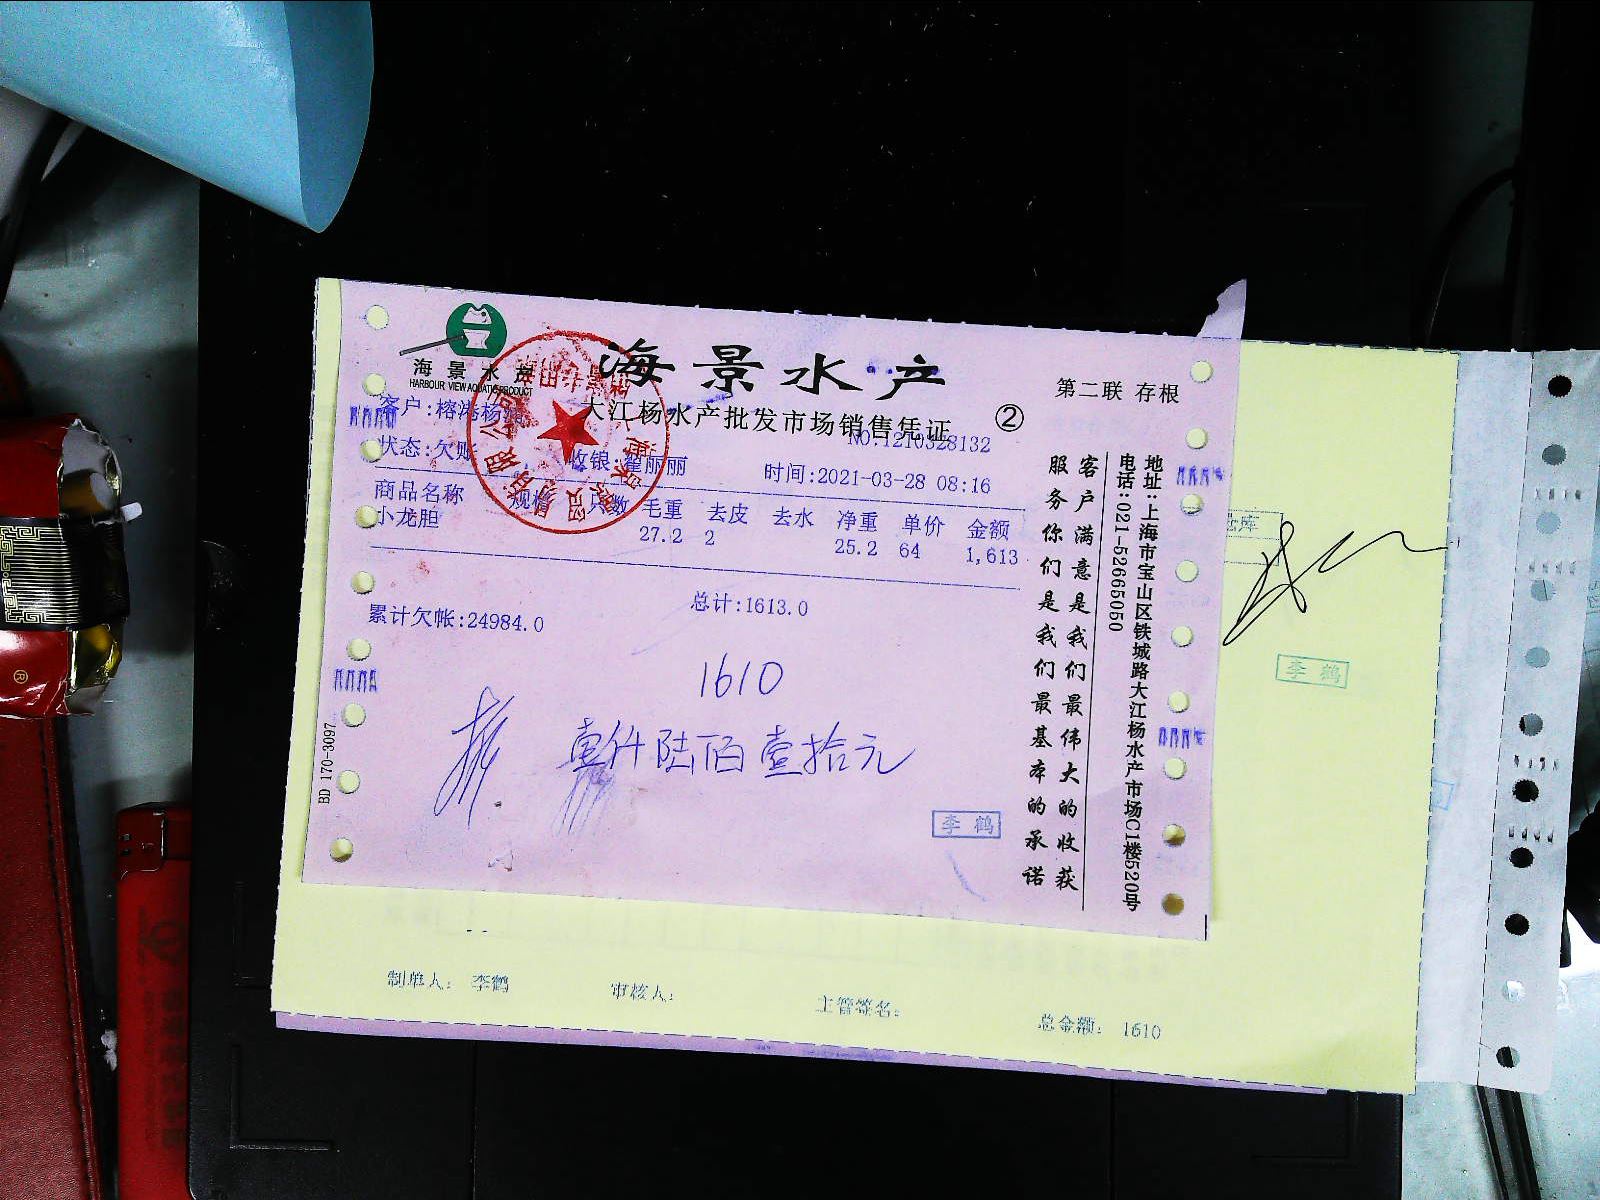 海景水产
HARBOUR VIEW AQUATIC PRODUCT
海景水产
大江杨水产批发市场销售凭证
②
第二联 存根
客户:榕港杨
NO:1210328132
状态:欠账
收银:翟丽丽
时间:2021-03-28 08:16
商品名称 规格 只数 毛重 去皮 去水 净重 单价 金额
小龙胆 27.2 2 25.2 64 1,613
累计欠帐:24984.0
总计:1613.0
1610
壹仟陆佰壹拾元
李鹤
BD 170-3097
客户满意是我们最伟大的收获
服务你们是我们最基本的承诺
地址:上海市宝山区铁城路大江杨水产市场C1楼520号
电话:021-52665050
李鹤
制单人: 李鹤
审核人:
主管签名:
总金额: 1610